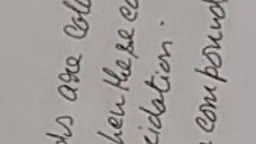 ds are call
hen these co
idation.
compound